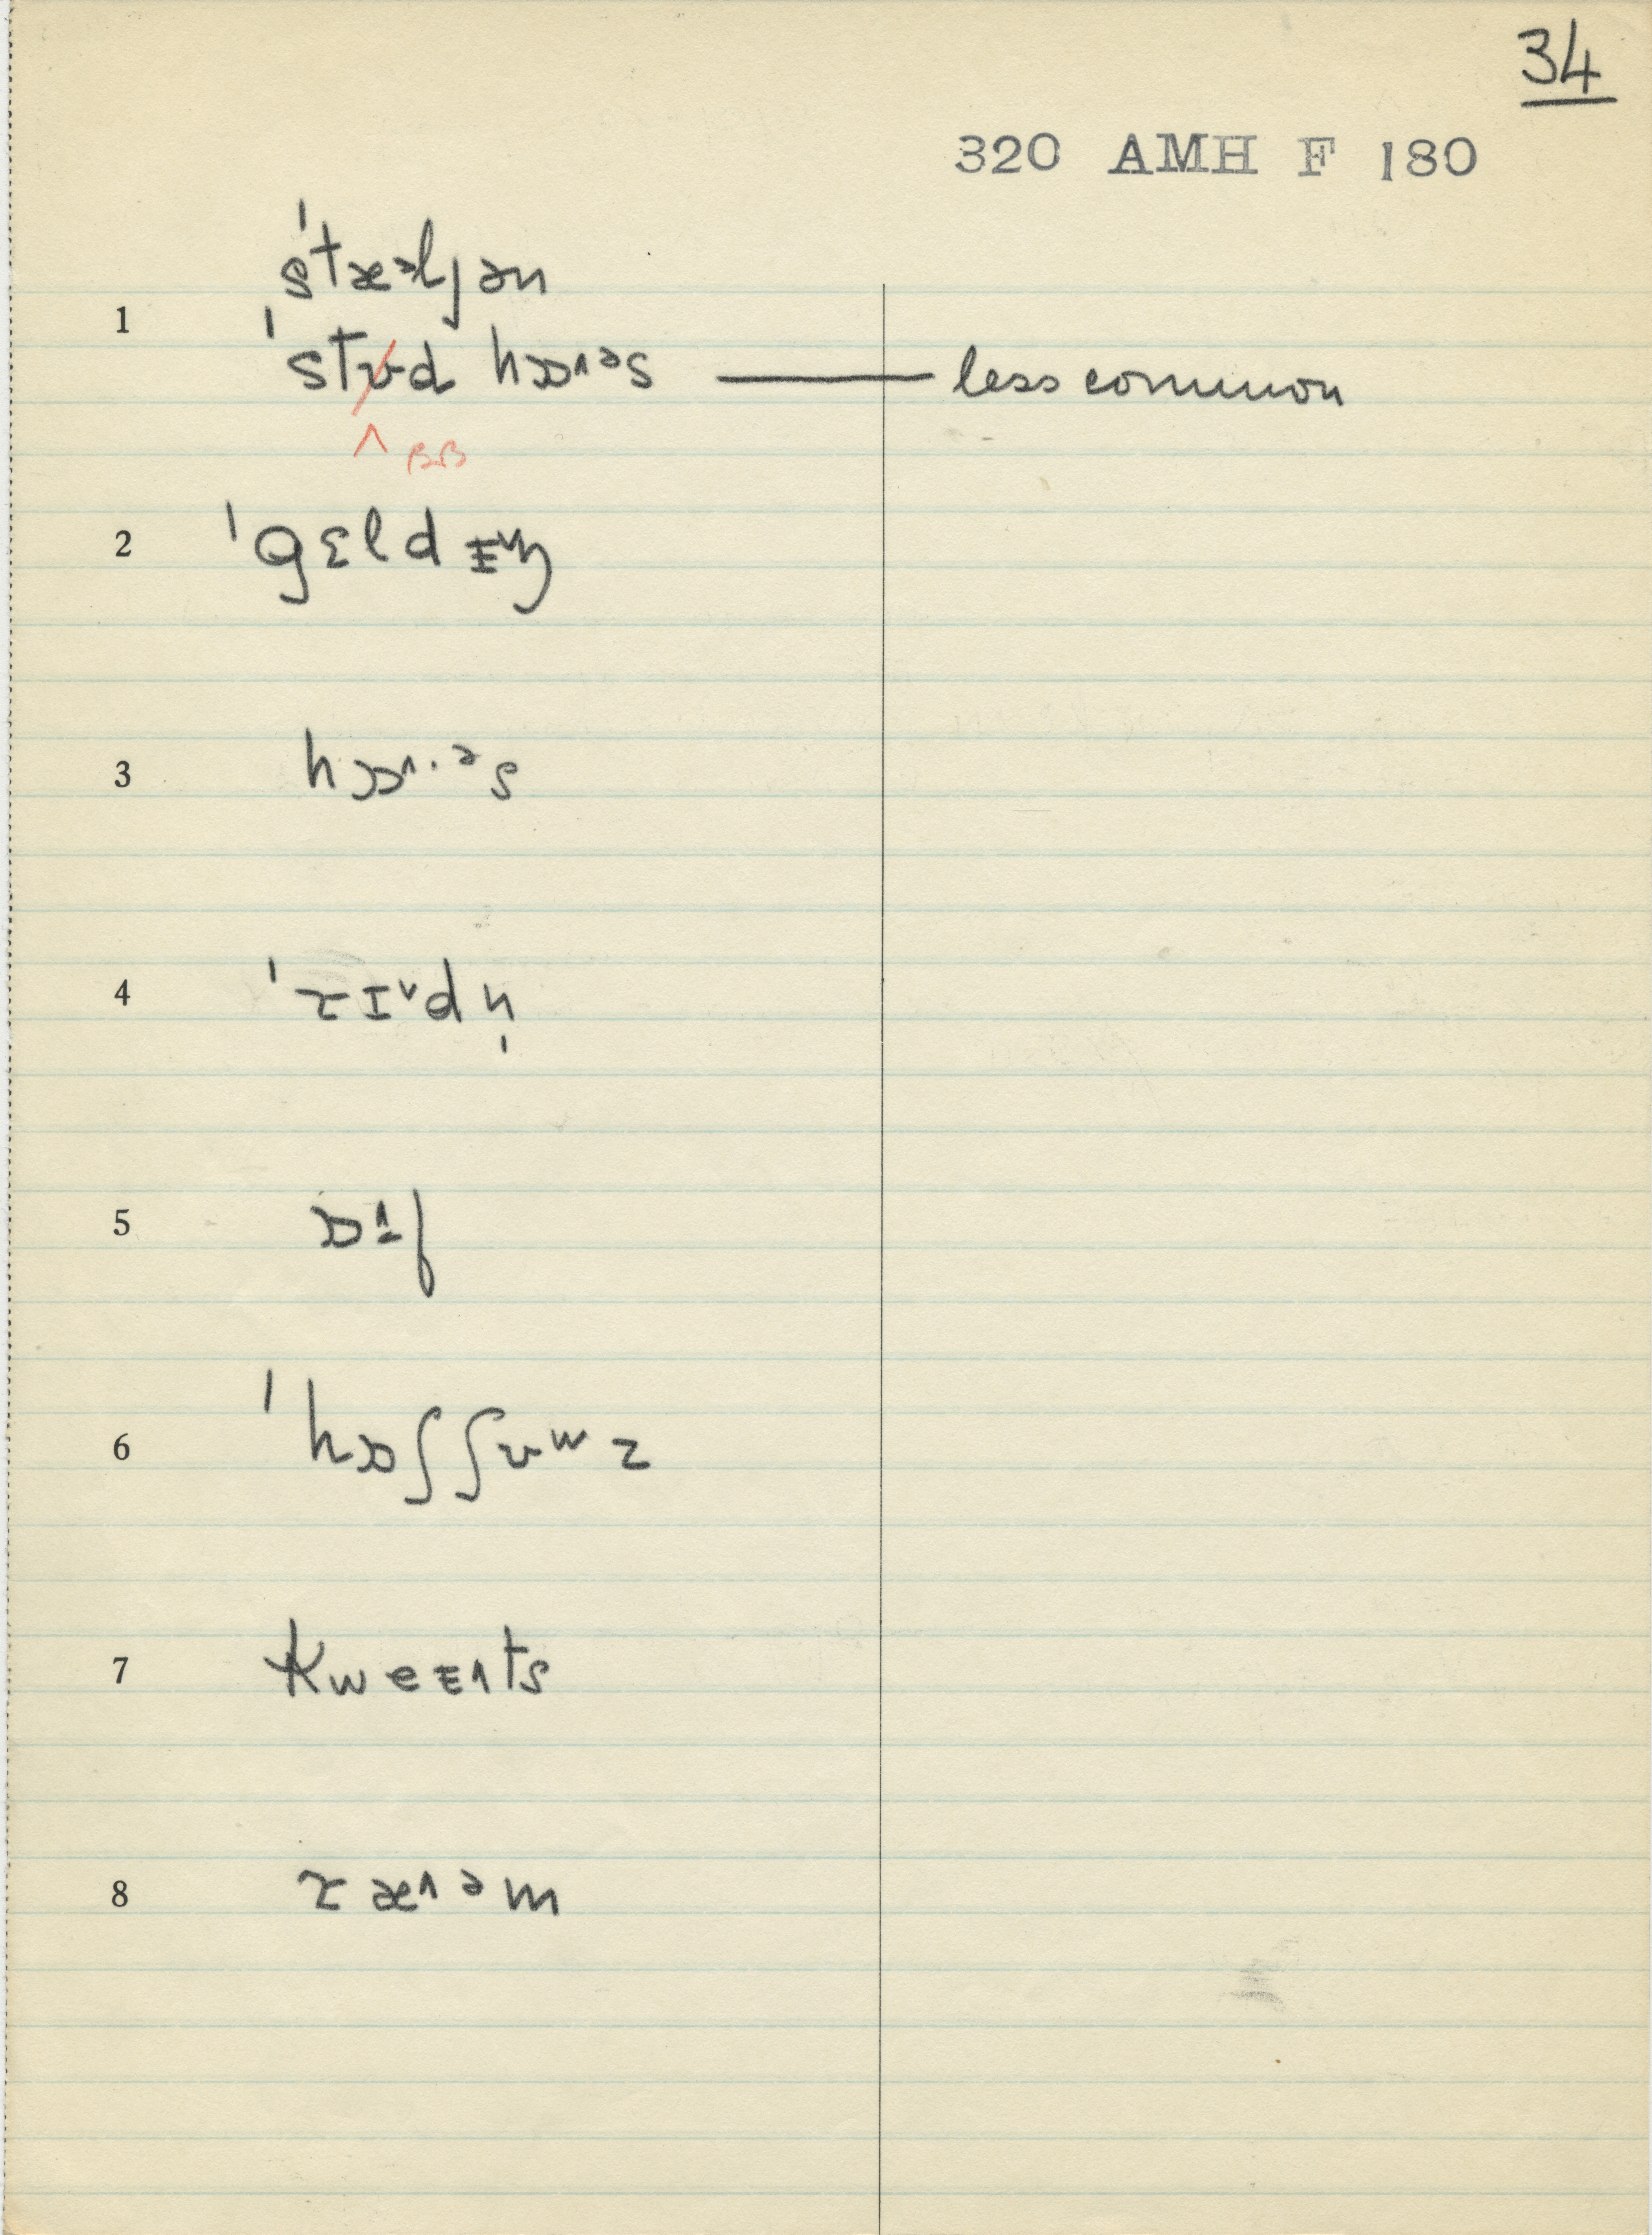 34
320 AMH F 180
ˈstæᵊljən
1
ˈstʊd hɔɒ˄ᵊs — less common
^ BB
2 ˈgɛldɪ˅ŋ
3 hɔɒ˄·ᵊs
4 ˈrɪ˅dn̩
5 ɒ˔f
6 ˈhɒʃʃʊʷz
7 kweɪ˄ts
8 ræ˄ᵊm